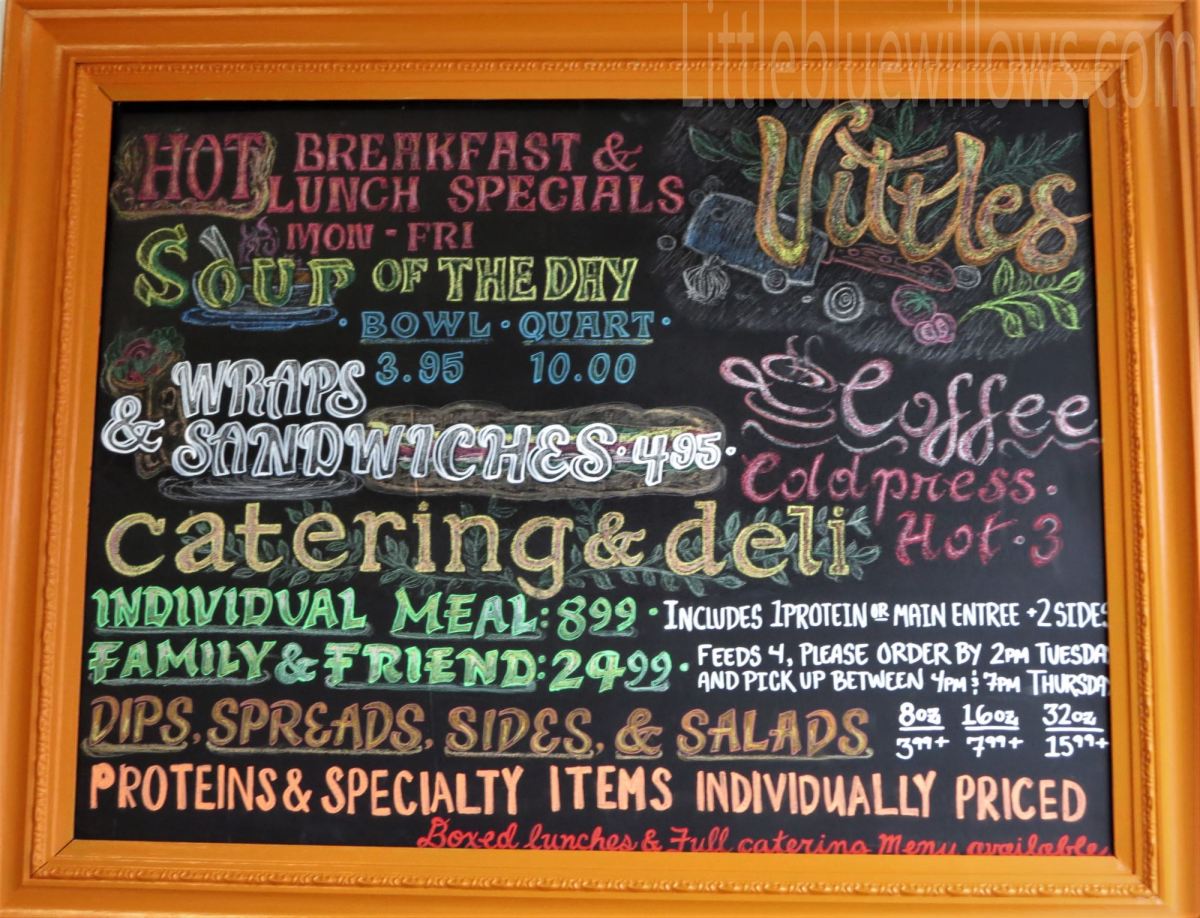 Littlebluewillows.com
HOT BREAKFAST &
LUNCH SPECIALS
MON - FRI
Vittles
SOUP OF THE DAY
· BOWL · QUART ·
3.95 10.00
WRAPS
& SANDWICHES · 4.95 ·
Coffee
Cold press ·
Hot · 3
catering & deli
INDIVIDUAL MEAL: 8 99 · INCLUDES 1 PROTEIN OR MAIN ENTREE + 2 SIDES
FAMILY & FRIEND: 24 99 · FEEDS 4, PLEASE ORDER BY 2PM TUESDA
AND PICK UP BETWEEN 4PM & 7PM THURSDA
DIPS, SPREADS, SIDES, & SALADS
8oz 16oz 32oz
3 99+ 7 99+ 15 99+
PROTEINS & SPECIALTY ITEMS INDIVIDUALLY PRICED
Boxed lunches & Full catering Menu available